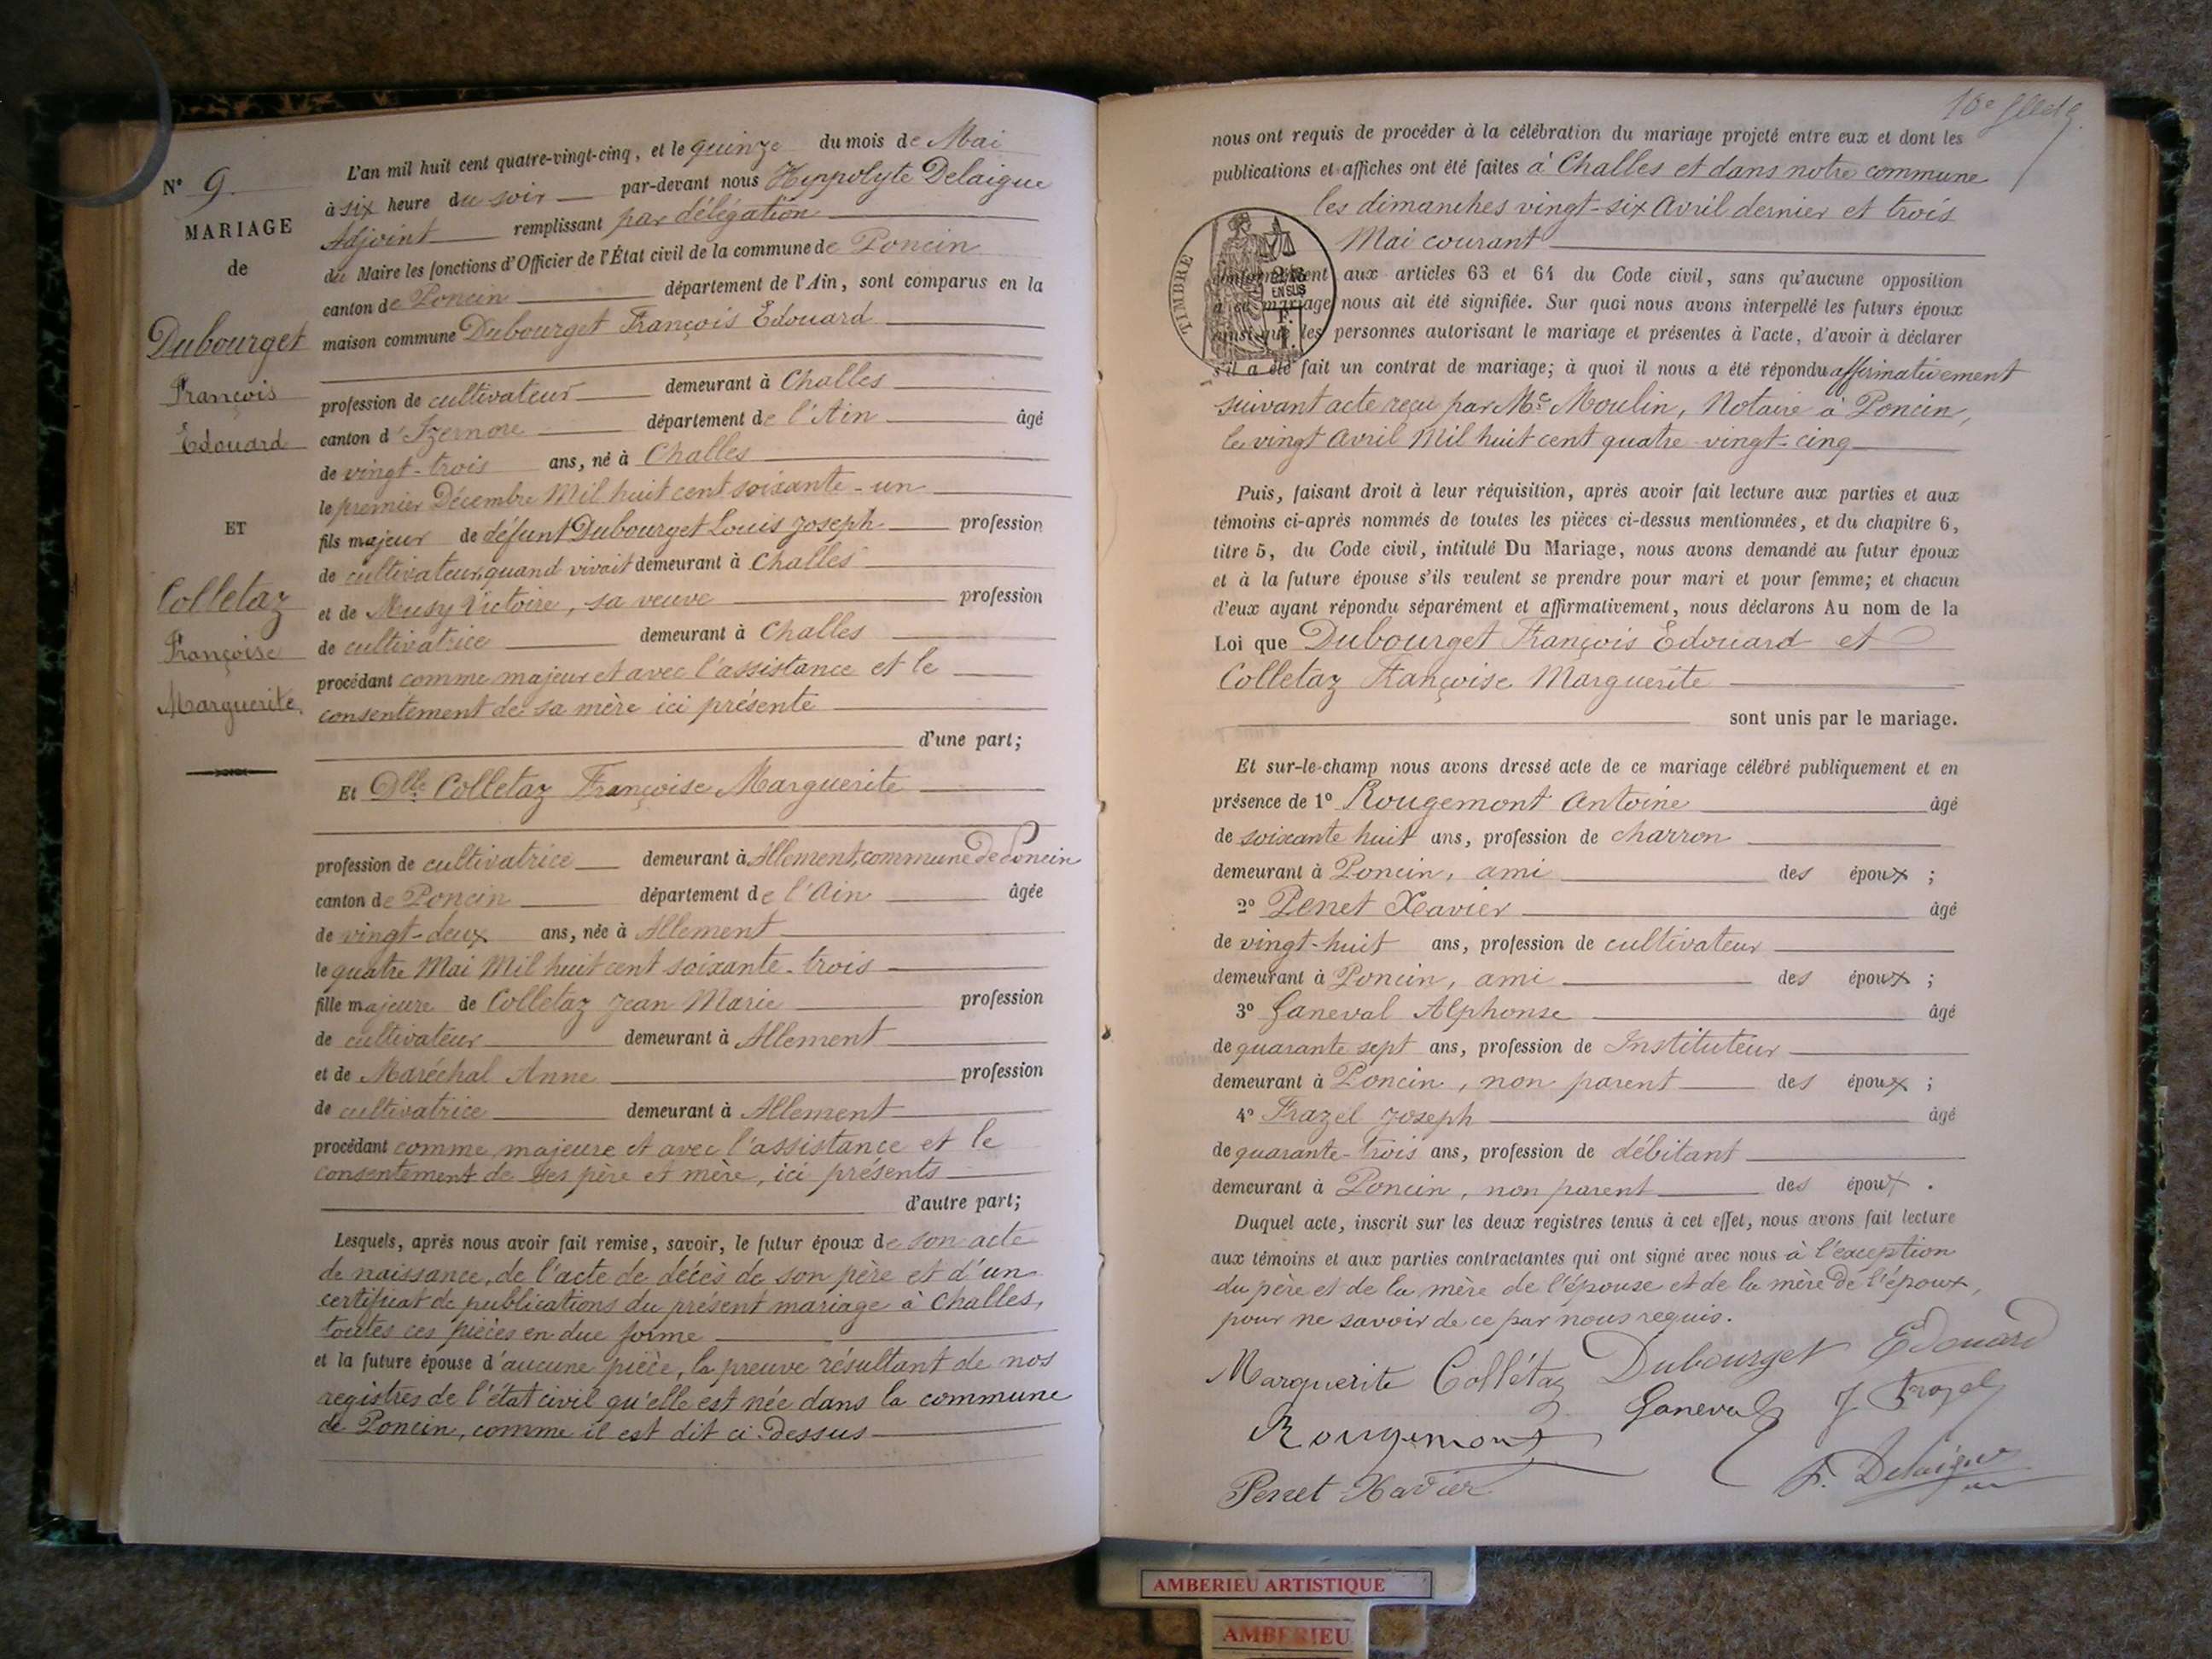 N° 9.
MARIAGE
de
Dubourget
François
Edouard
ET
Colletaz
Françoise
Marguerite.
L'an mil huit cent quatre-vingt-cinq, et le quinze du mois de Mai
à six heure du soir par-devant nous Hyppolyte Delaigue
Adjoint remplissant par délégation
du Maire les fonctions d'Officier de l'État civil de la commune de Poncin
canton de Poncin département de l'Ain, sont comparus en la
maison commune Dubourget François Edouard
profession de cultivateur demeurant à Challes
canton d'Izernore département de l'Ain âgé
de vingt-trois ans, né à Challes
le premier Décembre Mil huit cent soixante-un
fils majeur de défunt Dubourget Louis Joseph profession
de cultivateur, quand vivait demeurant à Challes
et de Musy Victoire, sa veuve profession
de cultivatrice demeurant à Challes
procédant comme majeur et avec l'assistance et le
consentement de sa mère ici présente
d'une part;
Et Dlle Colletaz Françoise Marguerite
profession de cultivatrice demeurant à Allement, commune de Poncin
canton de Poncin département de l'Ain âgée
de vingt-deux ans, née à Allement
le quatre Mai Mil huit cent soixante-trois
fille majeure de Colletaz Jean Marie profession
de cultivateur demeurant à Allement
et de Maréchal Anne profession
de cultivatrice demeurant à Allement
procédant comme majeure et avec l'assistance et le
consentement de ses père et mère, ici présents
d'autre part;
Lesquels, après nous avoir fait remise, savoir, le futur époux de son acte
de naissance, de l'acte de décès de son père et d'un
certificat de publications du présent mariage à Challes,
toutes ces pièces en due forme
et la future épouse d'aucune pièce, la preuve résultant de nos
registres de l'état civil qu'elle est née dans la commune
de Poncin, comme il est dit ci-dessus
nous ont requis de procéder à la célébration du mariage projeté entre eux et dont les
publications et affiches ont été faites à Challes et dans notre commune
les dimanches vingt-six Avril dernier et trois
Mai courant
TIMBRE
conformément aux articles 63 et 64 du Code civil, sans qu'aucune opposition
à ce mariage nous ait été signifiée. Sur quoi nous avons interpellé les futurs époux
ainsi que les personnes autorisant le mariage et présentes à l'acte, d'avoir à déclarer
s'il a été fait un contrat de mariage; à quoi il nous a été répondu affirmativement
suivant acte reçu par Me Moulin, Notaire à Poncin,
le vingt Avril Mil huit cent quatre-vingt-cinq
Puis, faisant droit à leur réquisition, après avoir fait lecture aux parties et aux
témoins ci-après nommés de toutes les pièces ci-dessus mentionnées, et du chapitre 6,
titre 5, du Code civil, intitulé Du Mariage, nous avons demandé au futur époux
et à la future épouse s'ils veulent se prendre pour mari et pour femme; et chacun
d'eux ayant répondu séparément et affirmativement, nous déclarons Au nom de la
Loi que Dubourget François Edouard et
Colletaz Françoise Marguerite
sont unis par le mariage.
Et sur-le-champ nous avons dressé acte de ce mariage célébré publiquement et en
présence de 1° Rougemont Antoine âgé
de soixante huit ans, profession de charron
demeurant à Poncin, ami des époux ;
2° Penet Xavier âgé
de vingt-huit ans, profession de cultivateur
demeurant à Poncin, ami des époux ;
3° Ganeval Alphonse âgé
de quarante sept ans, profession de Instituteur
demeurant à Poncin, non parent des époux ;
4° Frazel Joseph âgé
de quarante-trois ans, profession de débitant
demeurant à Poncin, non parent des époux .
Duquel acte, inscrit sur les deux registres tenus à cet effet, nous avons fait lecture
aux témoins et aux parties contractantes qui ont signé avec nous à l'exception
du père et de la mère de l'épouse et de la mère de l'époux,
pour ne savoir de ce par nous requis.
Marguerite Collétaz Dubourget Edouard
Rougemont Ganeval J Frazel
Penet Xavier F. Delaigue
AMBERIEU ARTISTIQUE
AMBERIEU